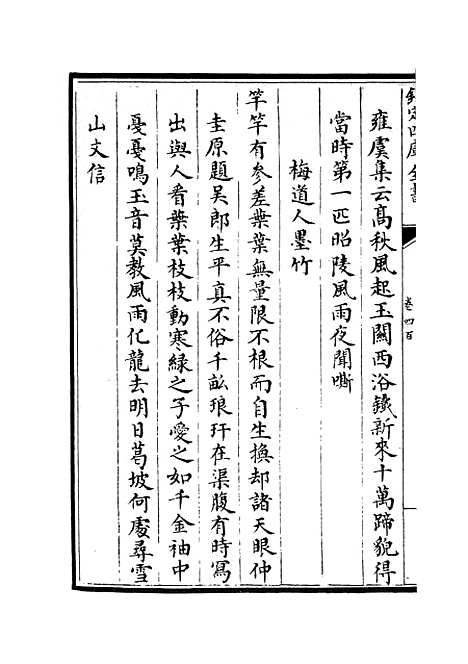 欽定四庫全書
卷四百
雍虞集云高秋風起玉關西浴鐵新來十萬蹄貌得
當時第一匹昭陵風雨夜聞嘶
梅道人墨竹
竿竿有參差葉葉無量限不根而自生換却諸天眼仲
圭原題吳郎生平真不俗千畝琅玕在渠腹有時寫
出與人看葉葉枝枝動寒綠之子愛之如千金袖中
戞戞鳴玉音莫教風雨化龍去明日葛坡何處尋雪
山文信